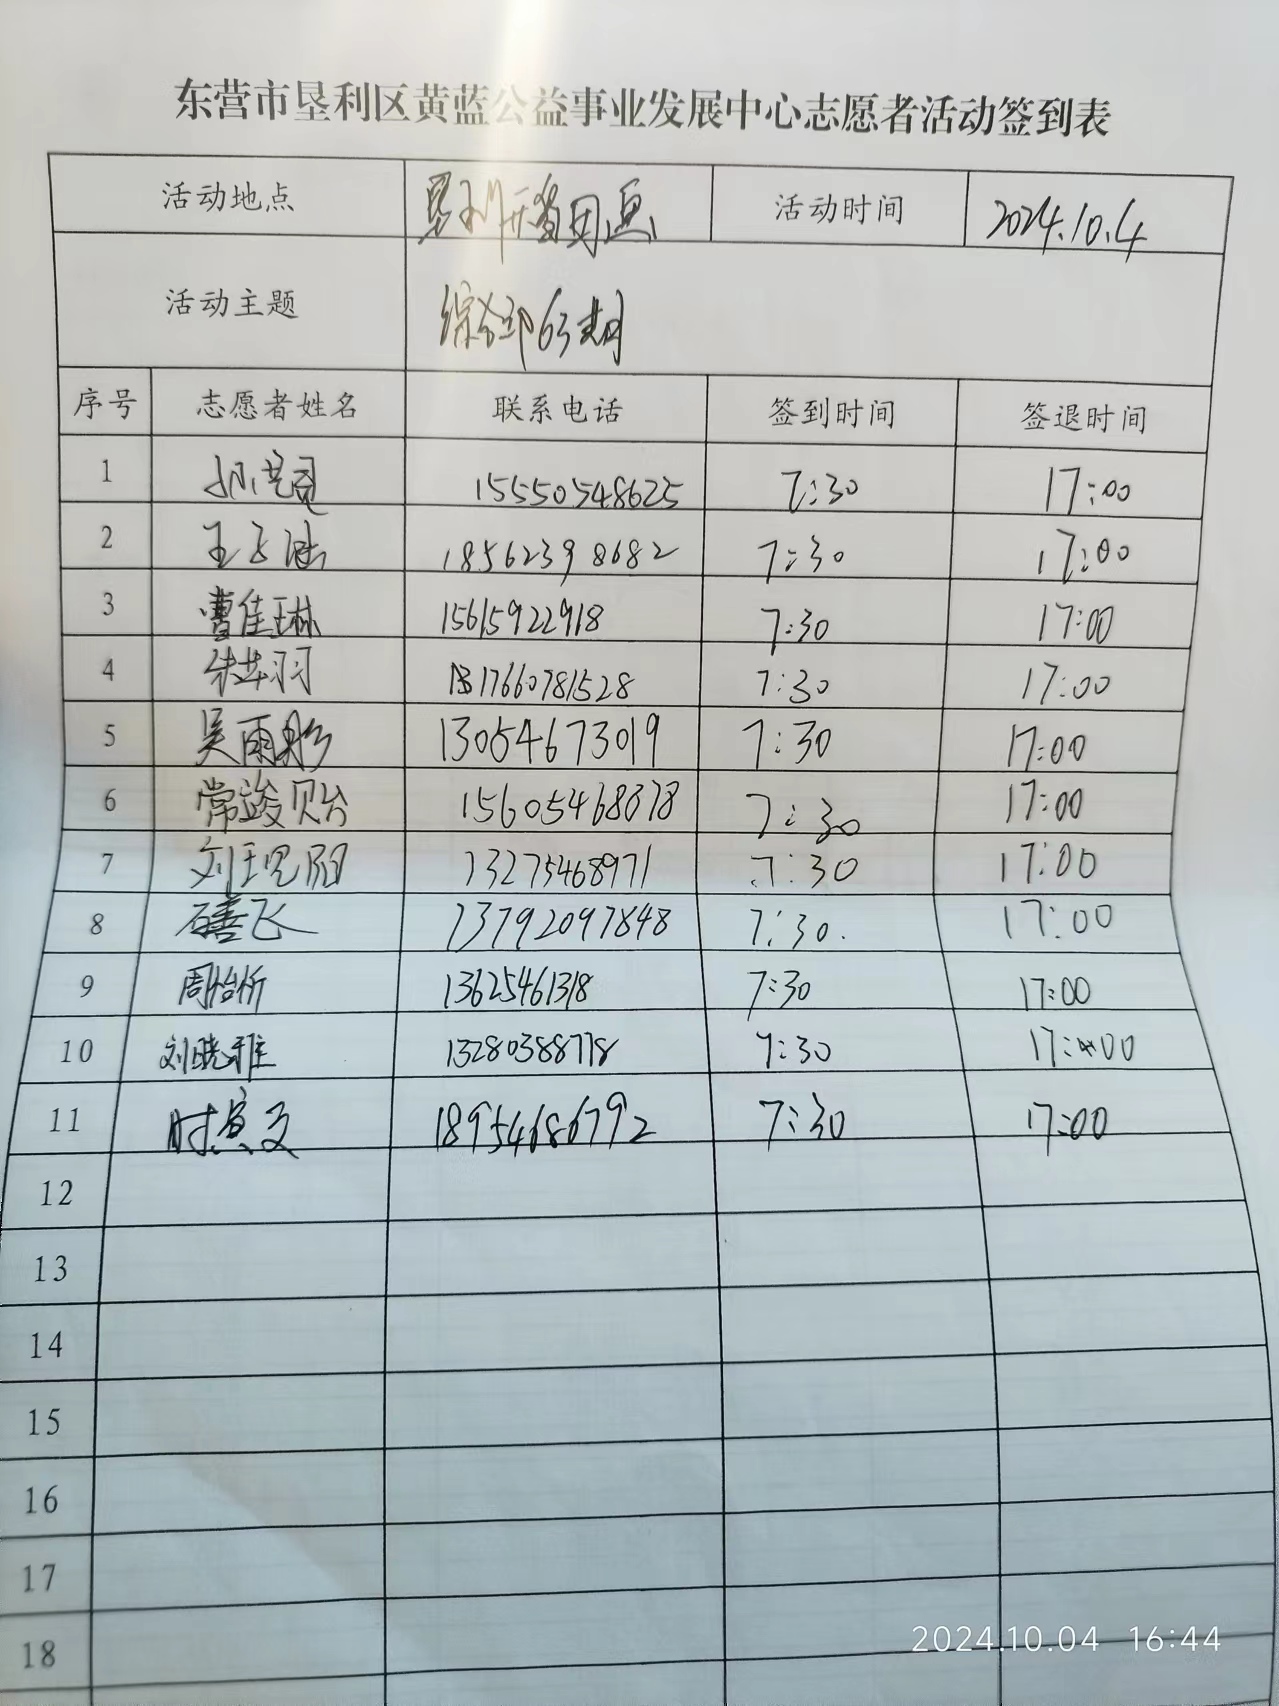 东营市垦利区黄蓝公益事业发展中心志愿者活动签到表
活动地点 垦利 活动时间 2024.10.4
活动主题 综合部63期
序号 志愿者姓名 联系电话 签到时间 签退时间
1 15550548625 7:30 17:00
2 王子涵 18562398682 7:30 17:00
3 曹佳琳 15615922918 7:30 17:00
4 朱华羽 17660781528 7:30 17:00
5 吴雨彤 13054673019 7:30 17:00
6 常竣贻 15605468378 7:30 17:00
7 刘 13275468971 7:30 17:00
8 石善飞 13792097848 7:30. 17:00
9 周怡忻 13625461318 7:30 17:00
10 刘晓雅 13280388778 7:30 17:00
11 时 18954686792 7:30 17:00
12
13
14
15
16
17
18
2024.10.04 16:44